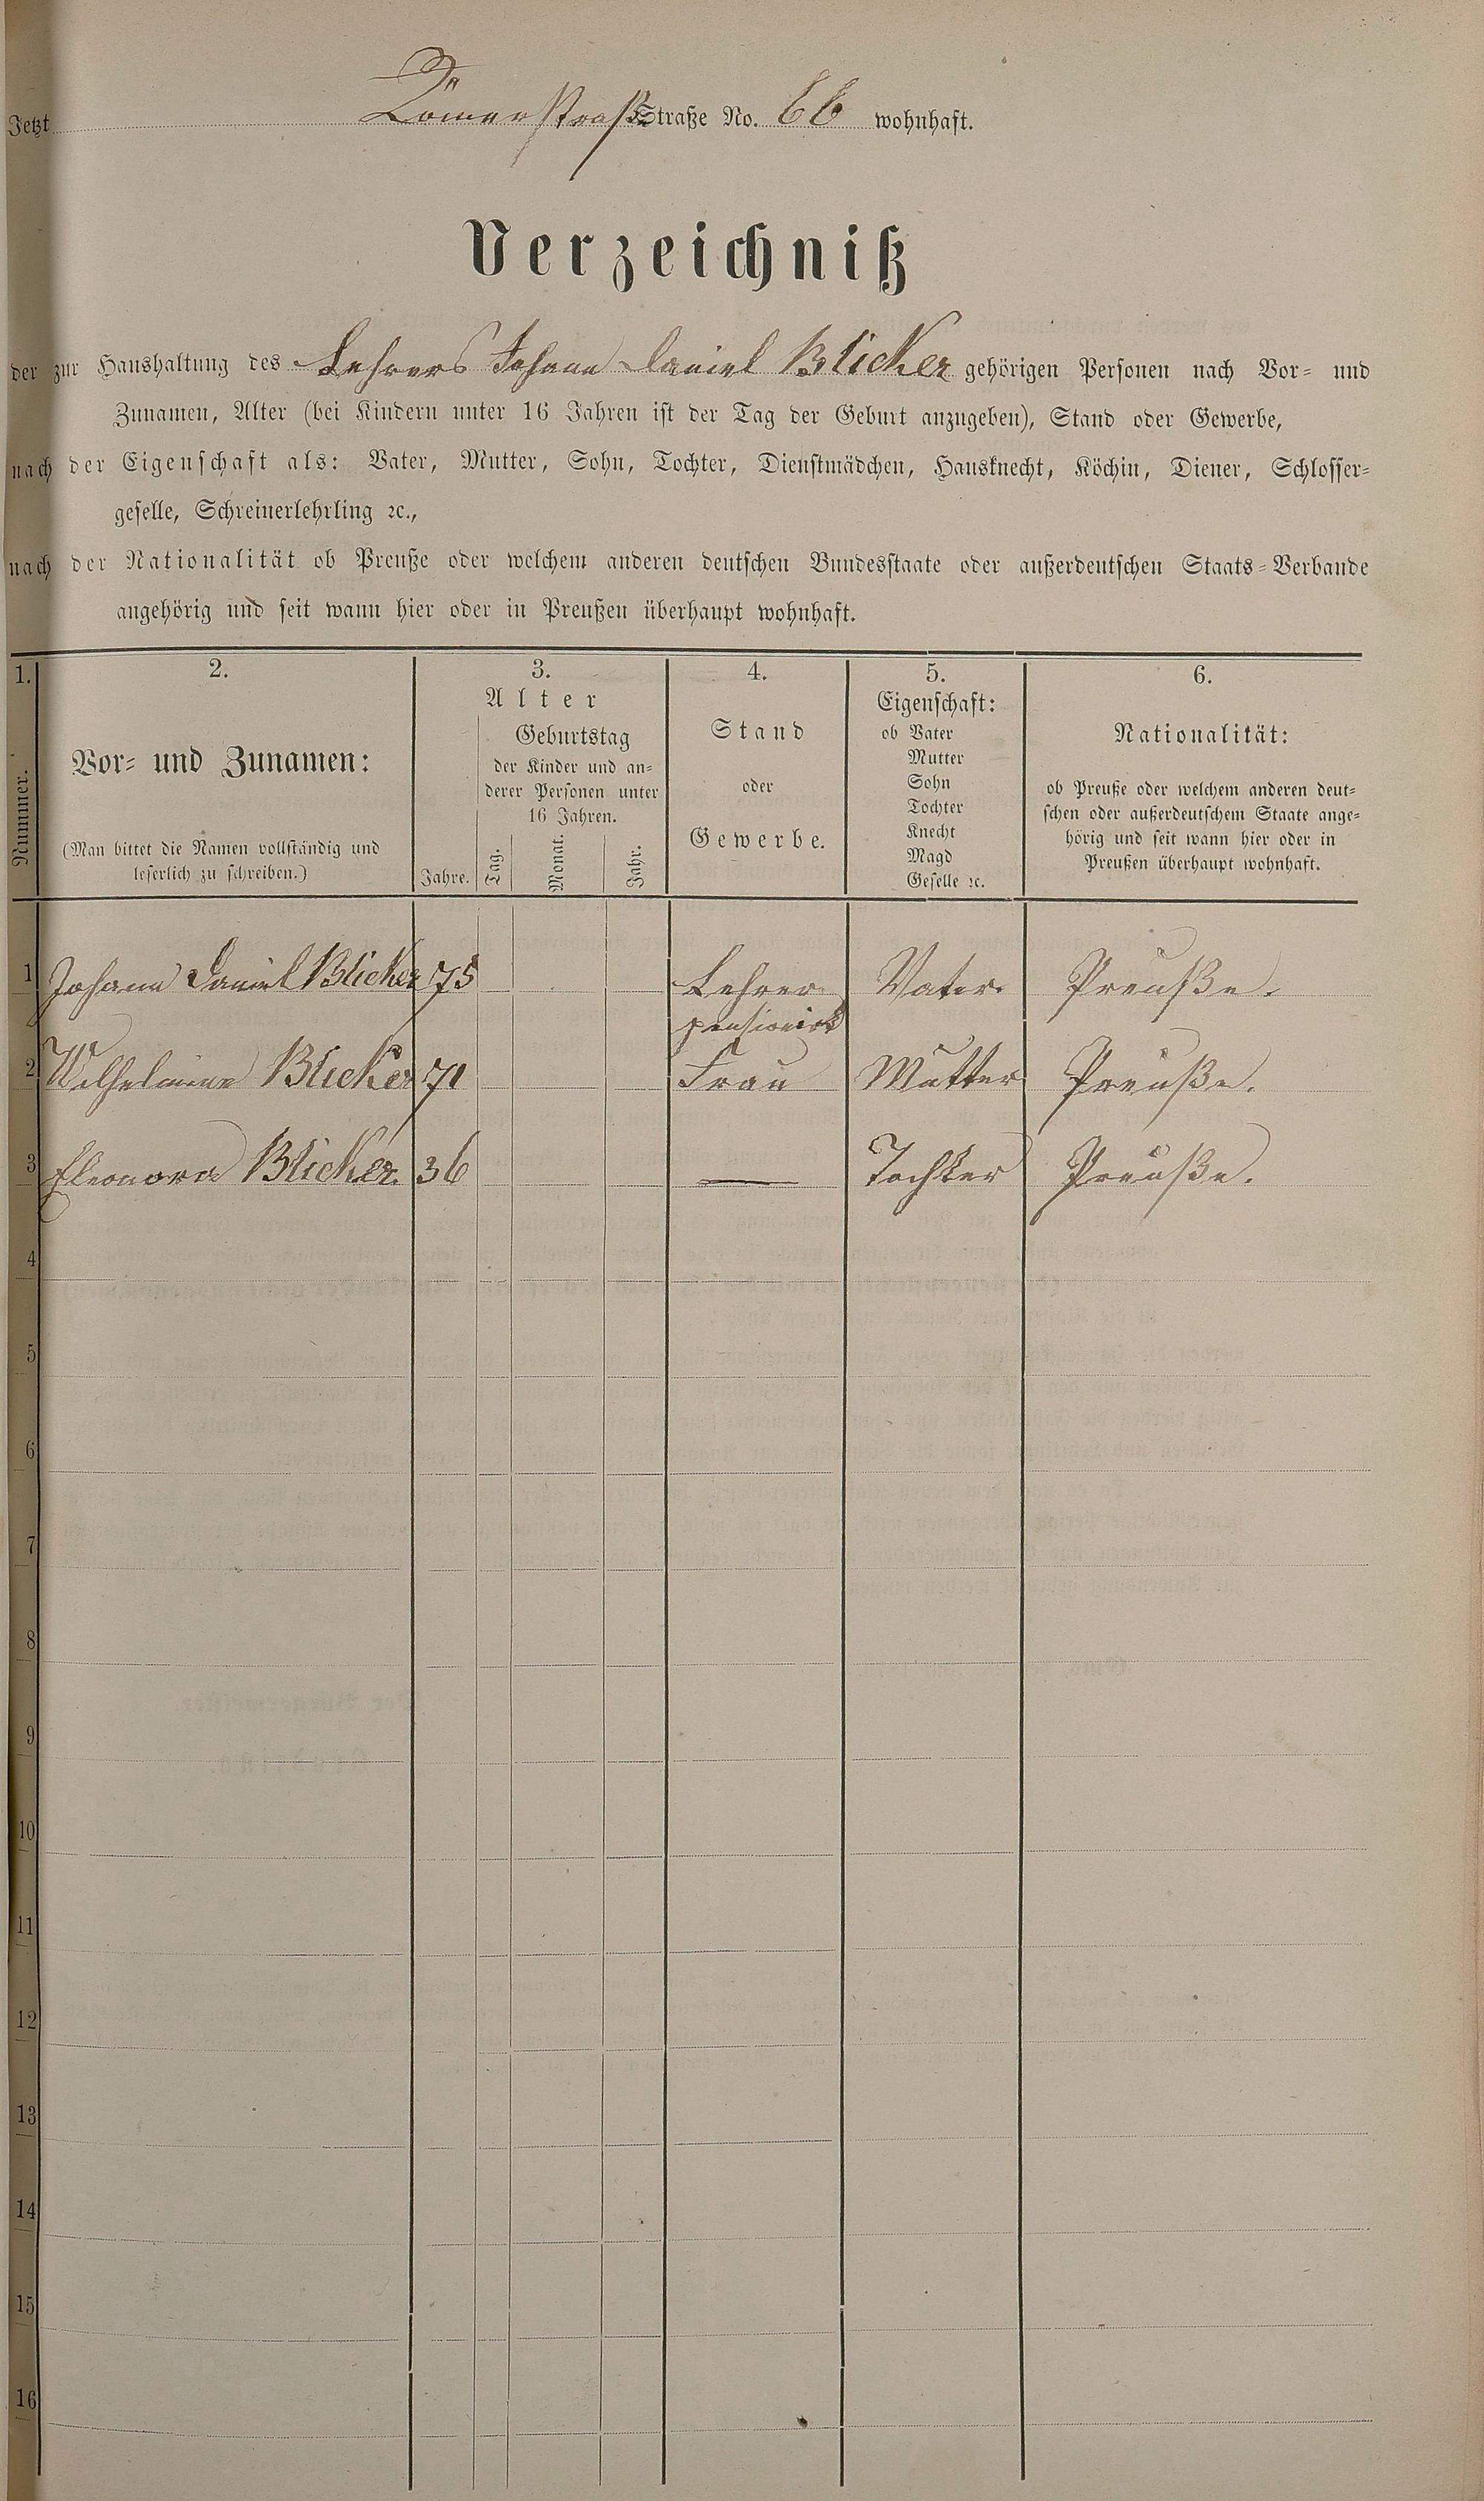 Jetzt Römerstraße Straße No. 66 wohnhaft.
Verzeichniß
der zur Haushaltung des Lehrers Johann Daniel Blicker gehörigen Personen nach Vor- und
Zunamen, Alter (bei Kindern unter 16 Jahren ist der Tag der Geburt anzugeben), Stand oder Gewerbe,
nach der Eigenschaft als: Vater, Mutter, Sohn, Tochter, Dienstmädchen, Hausknecht, Köchin, Diener, Schlosser-
geselle, Schreinerlehrling ꝛc.,
nach der Nationalität ob Preuße oder welchem anderen deutschen Bundesstaate oder außerdeutschen Staats-Verbande
angehörig und seit wann hier oder in Preußen überhaupt wohnhaft.
1. 2. 3. 4. 5. 6.
Nummer.
Vor- und Zunamen:
(Man bittet die Namen vollständig und
leserlich zu schreiben.)
Alter
Jahre.
Geburtstag
der Kinder und an-
derer Personen unter
16 Jahren.
Tag. Monat. Jahr.
Stand
oder
Gewerbe.
Eigenschaft:
ob Vater
Mutter
Sohn
Tochter
Knecht
Magd
Geselle ꝛc.
Nationalität:
ob Preuße oder welchem anderen deut-
schen oder außerdeutschem Staate ange-
hörig und seit wann hier oder in
Preußen überhaupt wohnhaft.
1 Johann Daniel Blicker 75 Lehrer Vater. Preuße.
pensionirt
2 Wilhelmine Blicker 71 Frau Mutter Preuße.
3 Eleonora Blicker. 36 — Tochter Preuße.
4
5
6
7
8
9
10
11
12
13
14
15
16